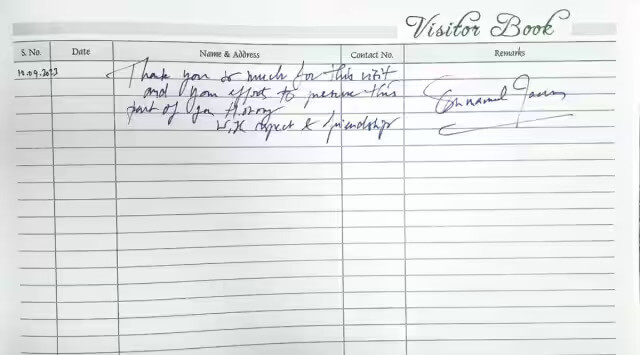 Visitor Book
S. No. Date Name & Address Contact No. Remarks
10.09.2023
Thank you so much for this visit
and your effort to preserve this
part of your History
With respect & friendship
Emmanuel